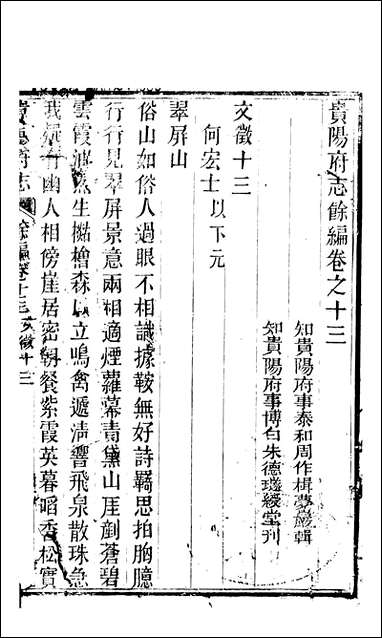 貴陽府志餘編卷之十三
知貴陽府事泰和周作楫夢巖輯
知貴陽府事博白朱德璲綬堂刊
文徵十三
何宏士以下元
翠屏山
俗山如俗人過眼不相識據鞍無好詩羈思拍胸臆
行行見翠屏景意兩相適煙蘿冪青黛山厓剷蒼碧
雲霞 然生 檜森以立鳴禽遞清響飛泉散珠急
我疑有幽人相傍崖居密朝餐紫霞英暮啗香松實
貴陽府志 餘編卷十三 文徵十三